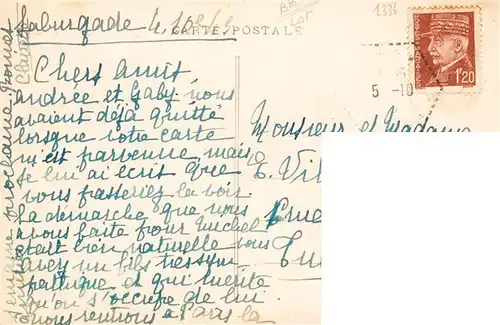 Laburgade 4.10.43
CARTE POSTALE
LOT
1336
1F20
5 -10
Chers amis
Andrée et Gaby nous
avaient déjà quitté
lorsque votre carte
m'est parvenue, mais
je lui ai écrit que
vous passeriez la voir
La démarche que nous
avons faite pour Michel
était bien naturelle vous
avez un fils très sym-
pathique et qui mérite
qu'on s'occupe de lui
nous rentrons à Paris la
semaine prochaine
Monsieur et Madame